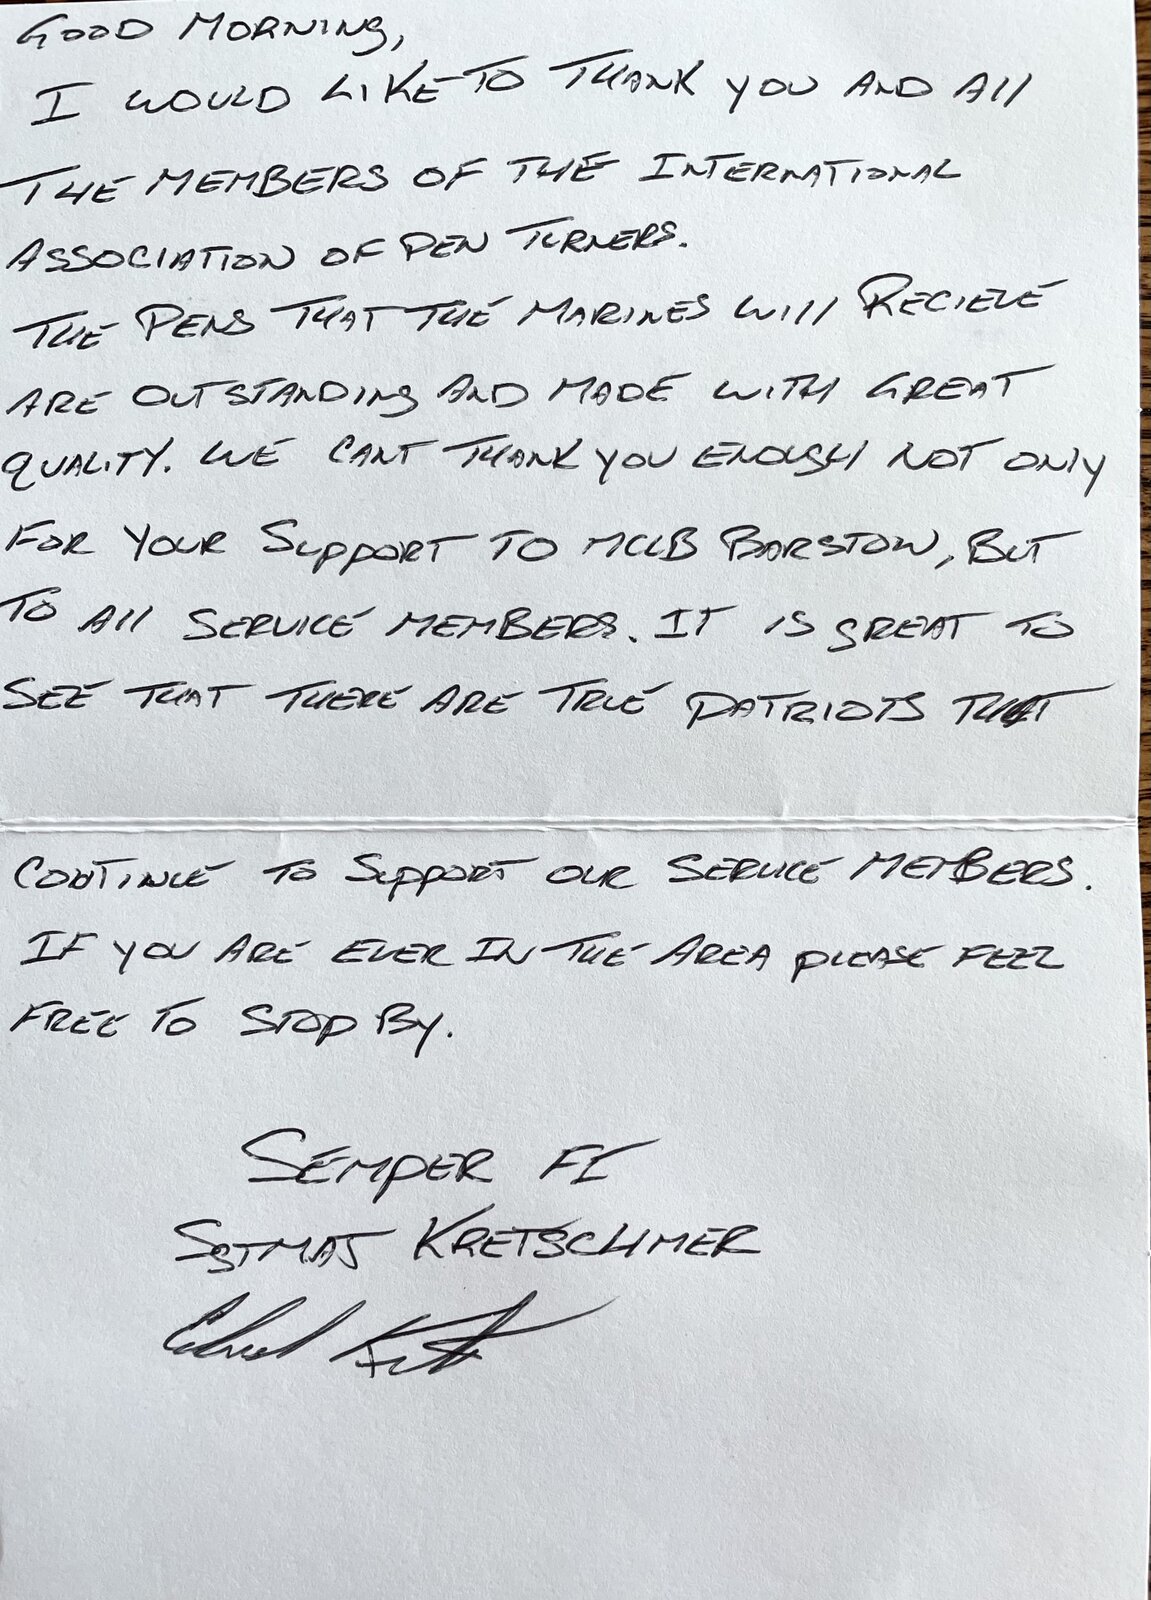 GOOD MORNING,
I WOULD LIKE TO THANK YOU AND All
THE MEMBERS OF THE INTERNATIONAL
ASSOCIATION OF PEN TURNERS.
THE PENS THAT THE MARINES WIll RECIEVE
ARE OUTSTANDING AND MADE WITH GREAT
QUALITY. WE CANT THANK YOU ENOUGH NOT ONLY
FOR YOUR SUPPORT TO MCLB BARSTOW, BUT
TO All SERVICE MEMBERS. IT IS GREAT TO
SEE THAT THERE ARE TRUE PATRIOTS THAT
CONTINUE TO SUPPORT OUR SERVICE MEMBERS.
IF YOU ARE EVER IN THE AREA PLEASE FEEL
FREE TO STOP BY.
SEMPER FI
SGTMAJ KRETSCHMER